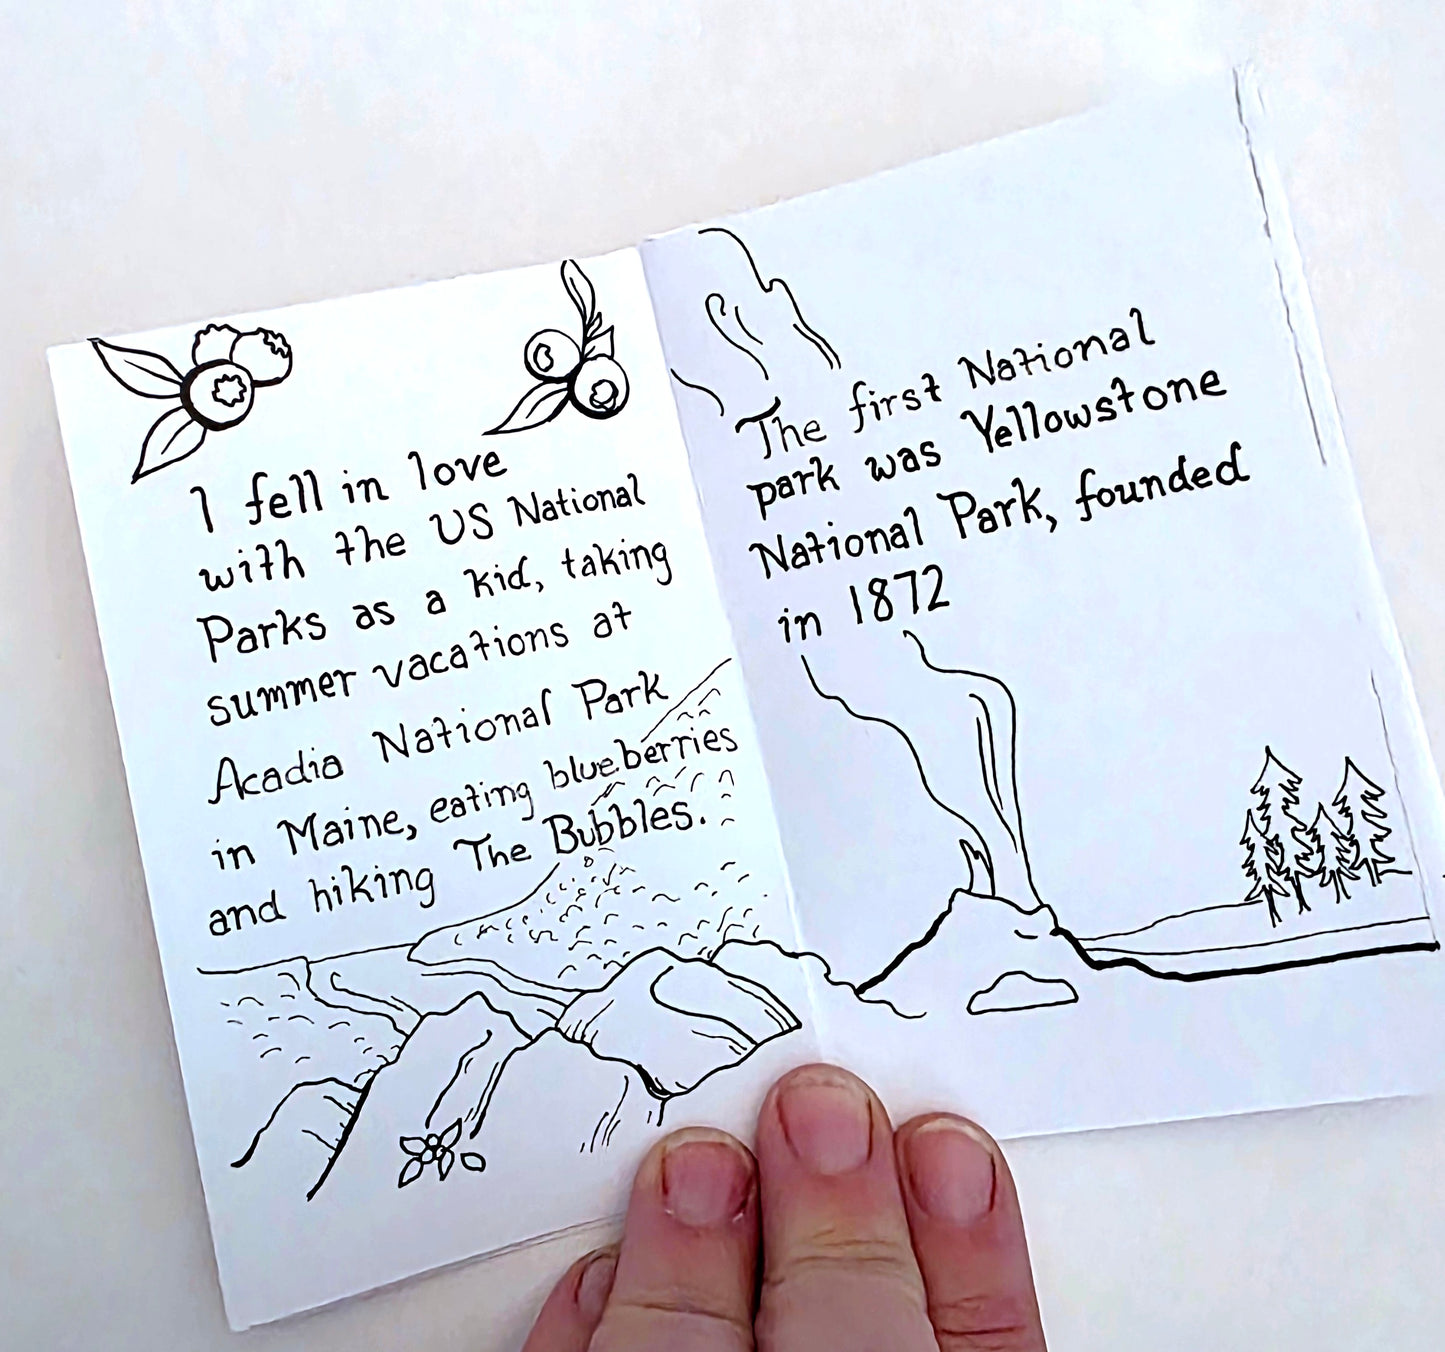 I fell in love
with the US National
Parks as a kid, taking
summer vacations at
Acadia National Park
in Maine, eating blueberries
and hiking The Bubbles.
The first National
park was Yellowstone
National Park, founded
in 1872